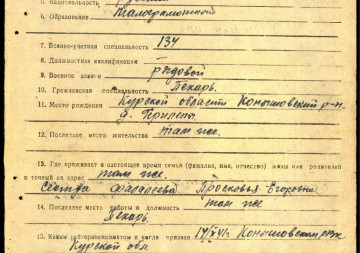 5. Национальность русский
6. Образование Малограмотный
7. Военно-учетная специальность 134
8. Должностная квалификация
9. Военное звание рядовой
10. Гражданская специальность Пекарь.
11. Место рождения Курской области Конышовский р-н
д. Прилепы
12. Последнее место жительства там же.
13. Где проживает в настоящее время семья (фамилия, имя, отчество) жены или родителей
и точный их адрес там же.
сестра Фаталеева Просковья Егоровна
14. Последнее место работы и должность там же
Пекарь.
15. Каким райгорвоенкоматом и когда призван 14/IX 41 г. Конышовским РВК
Курской обл